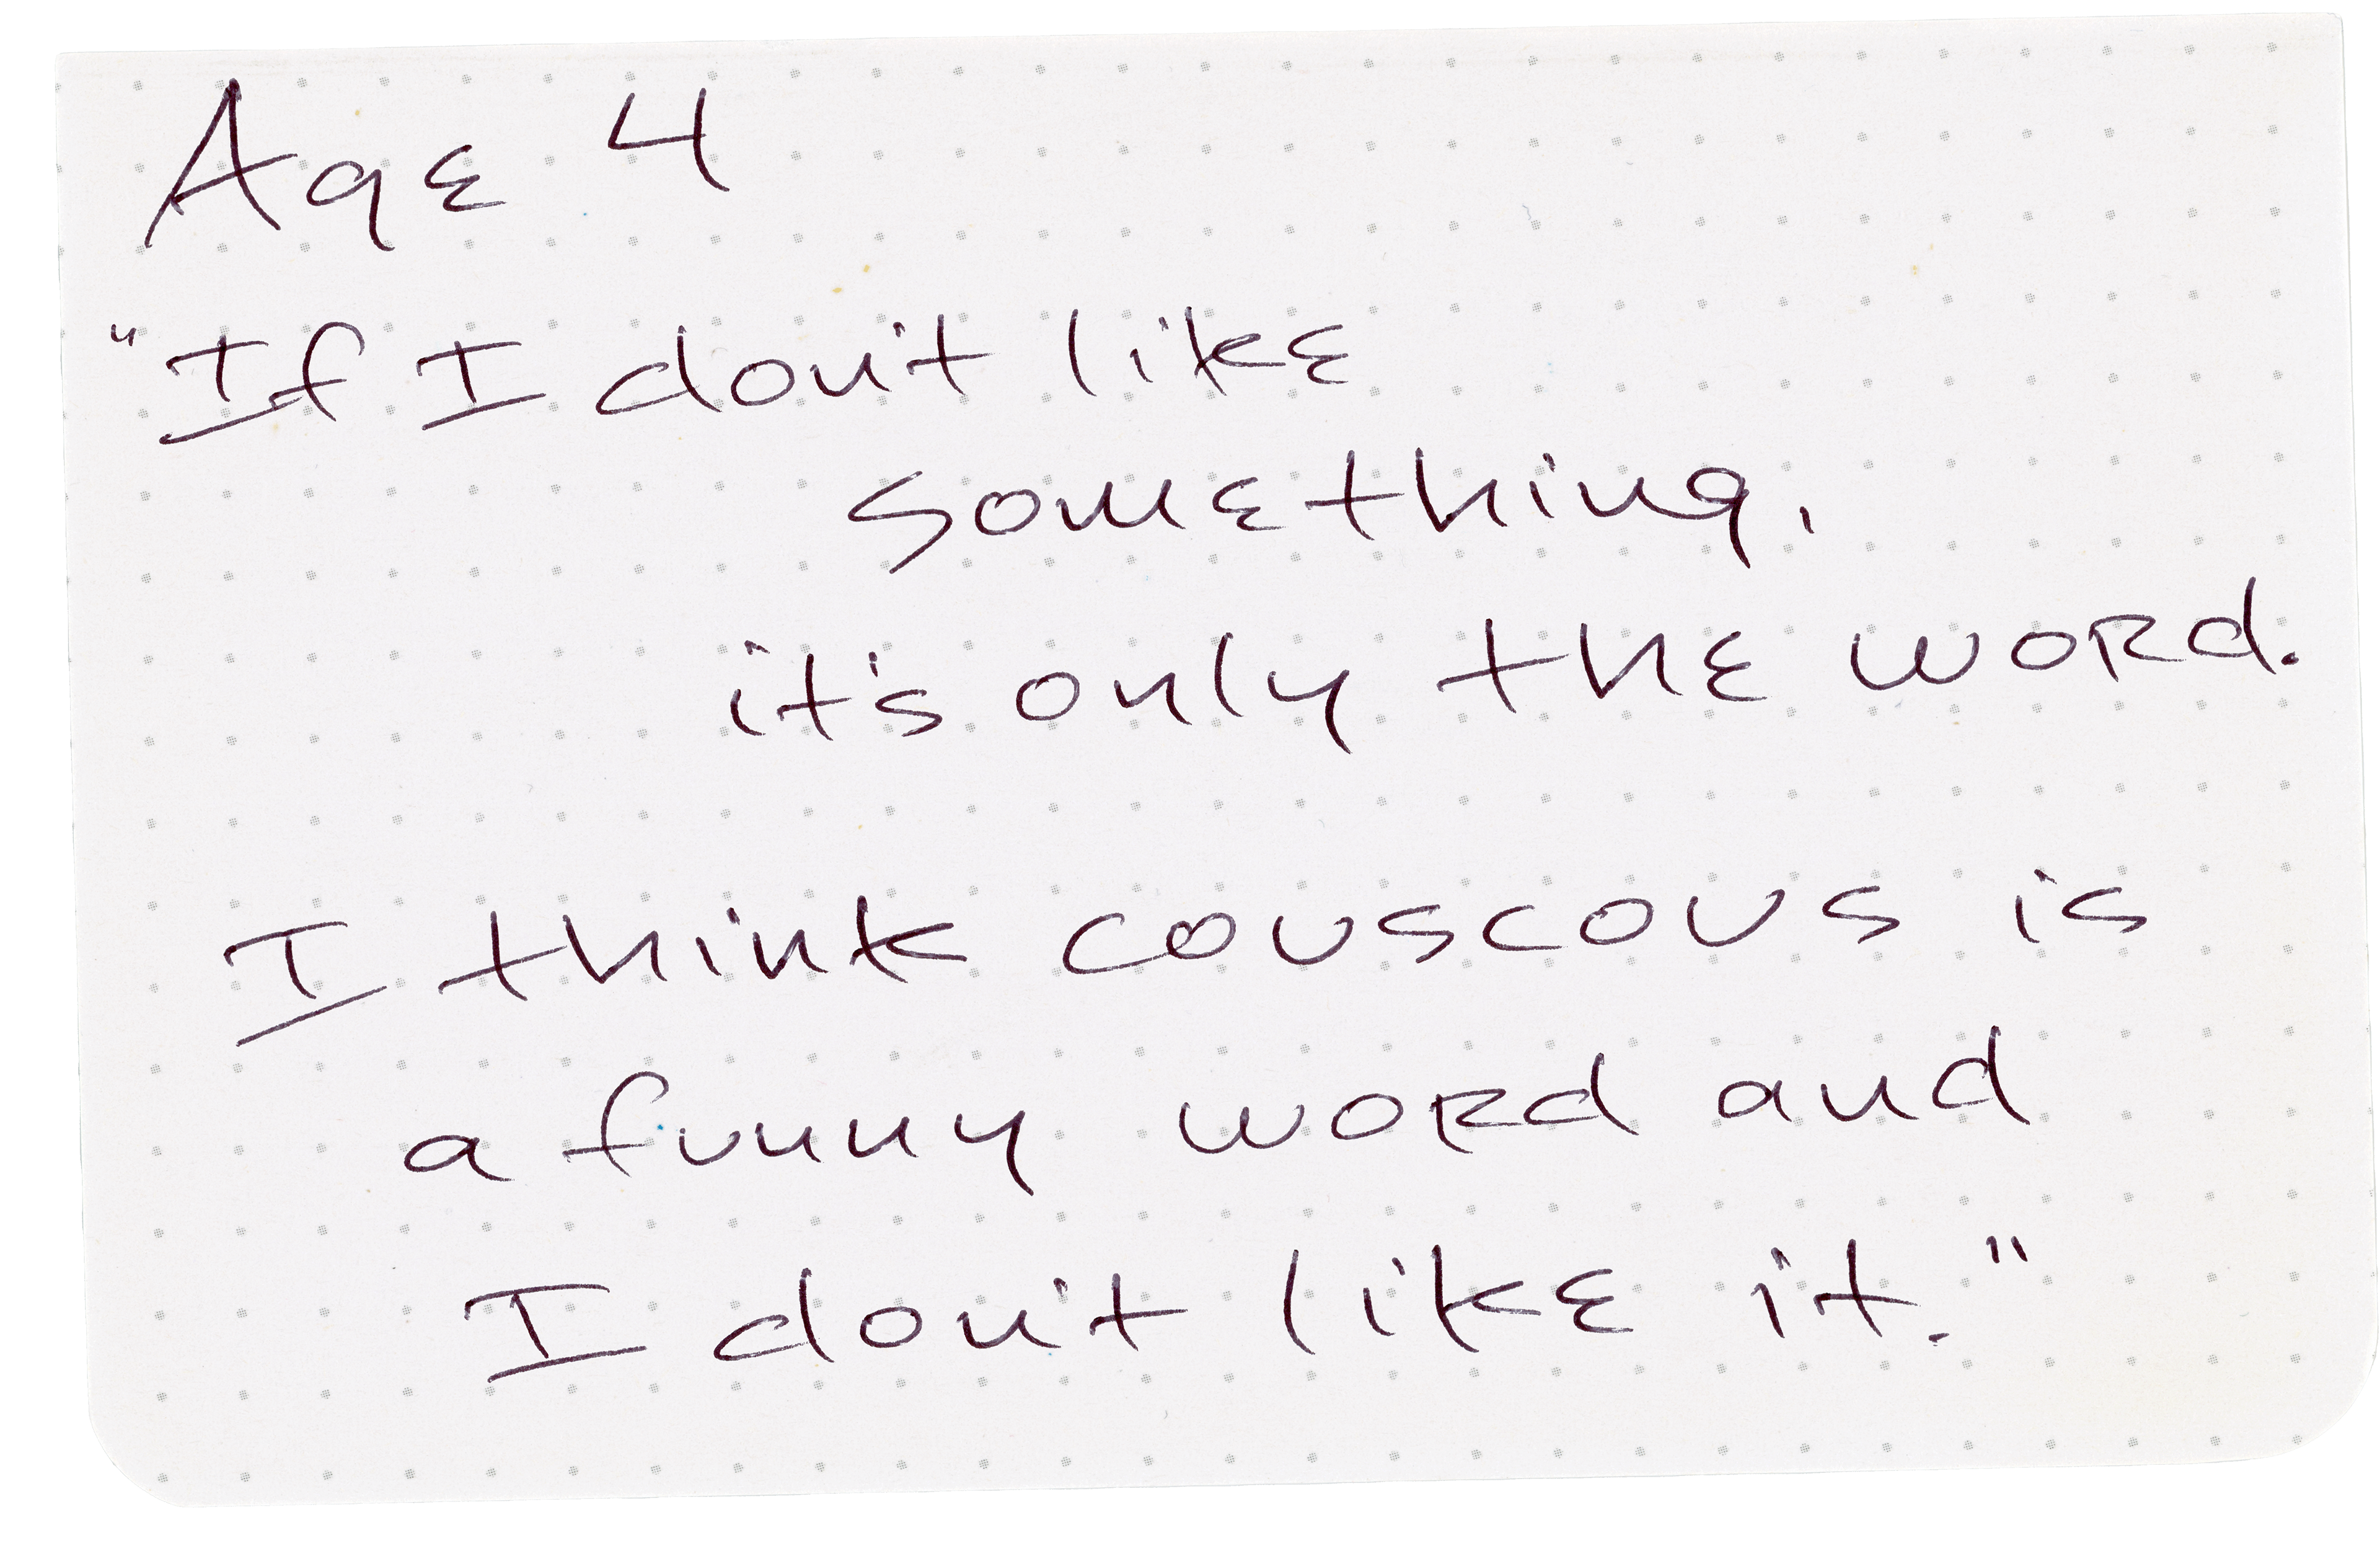 Age 4
"If I don't like
something,
it's only the word.
I think couscous is
a funny word and
I don't like it."